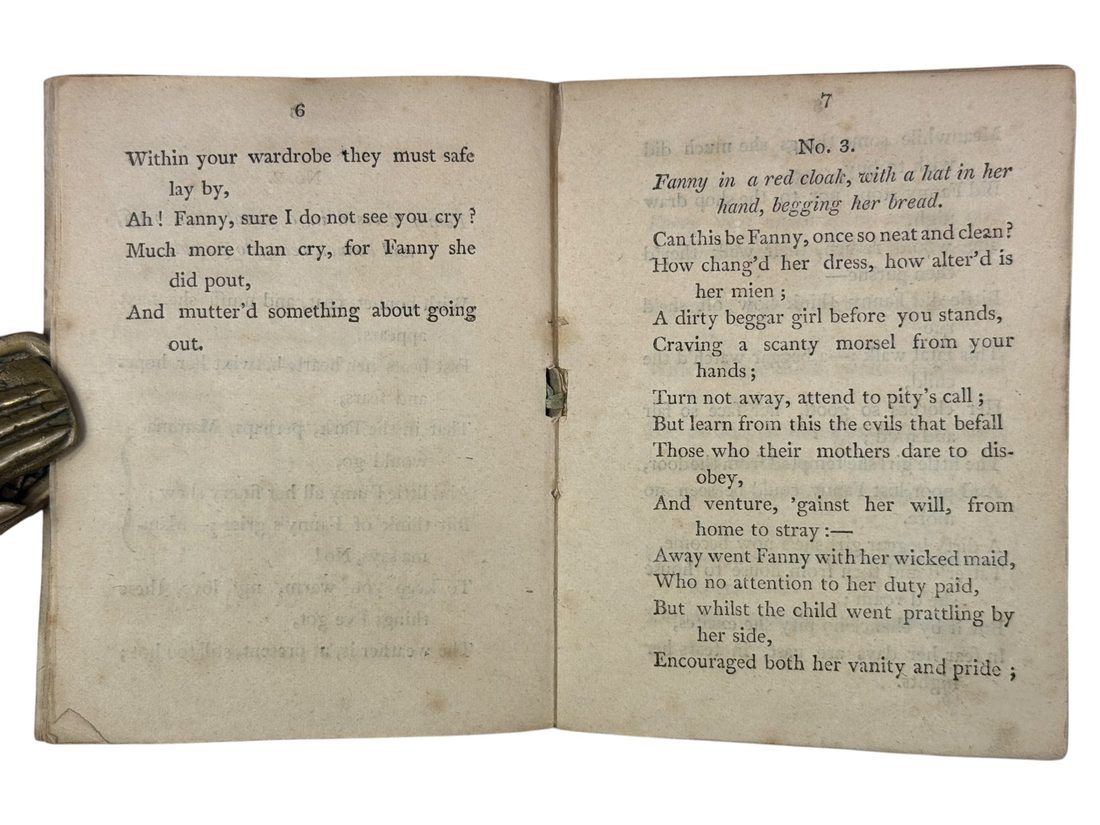 6
Within your wardrobe they must safe
lay by,
Ah! Fanny, sure I do not see you cry?
Much more than cry, for Fanny she
did pout,
And mutter'd something about going
out.
7
No. 3.
Fanny in a red cloak, with a hat in her
hand, begging her bread.
Can this be Fanny, once so neat and clean?
How chang'd her dress, how alter'd is
her mien;
A dirty beggar girl before you stands,
Craving a scanty morsel from your
hands;
Turn not away, attend to pity's call;
But learn from this the evils that befall
Those who their mothers dare to dis-
obey,
And venture, 'gainst her will, from
home to stray:—
Away went Fanny with her wicked maid,
Who no attention to her duty paid,
But whilst the child went prattling by
her side,
Encouraged both her vanity and pride;